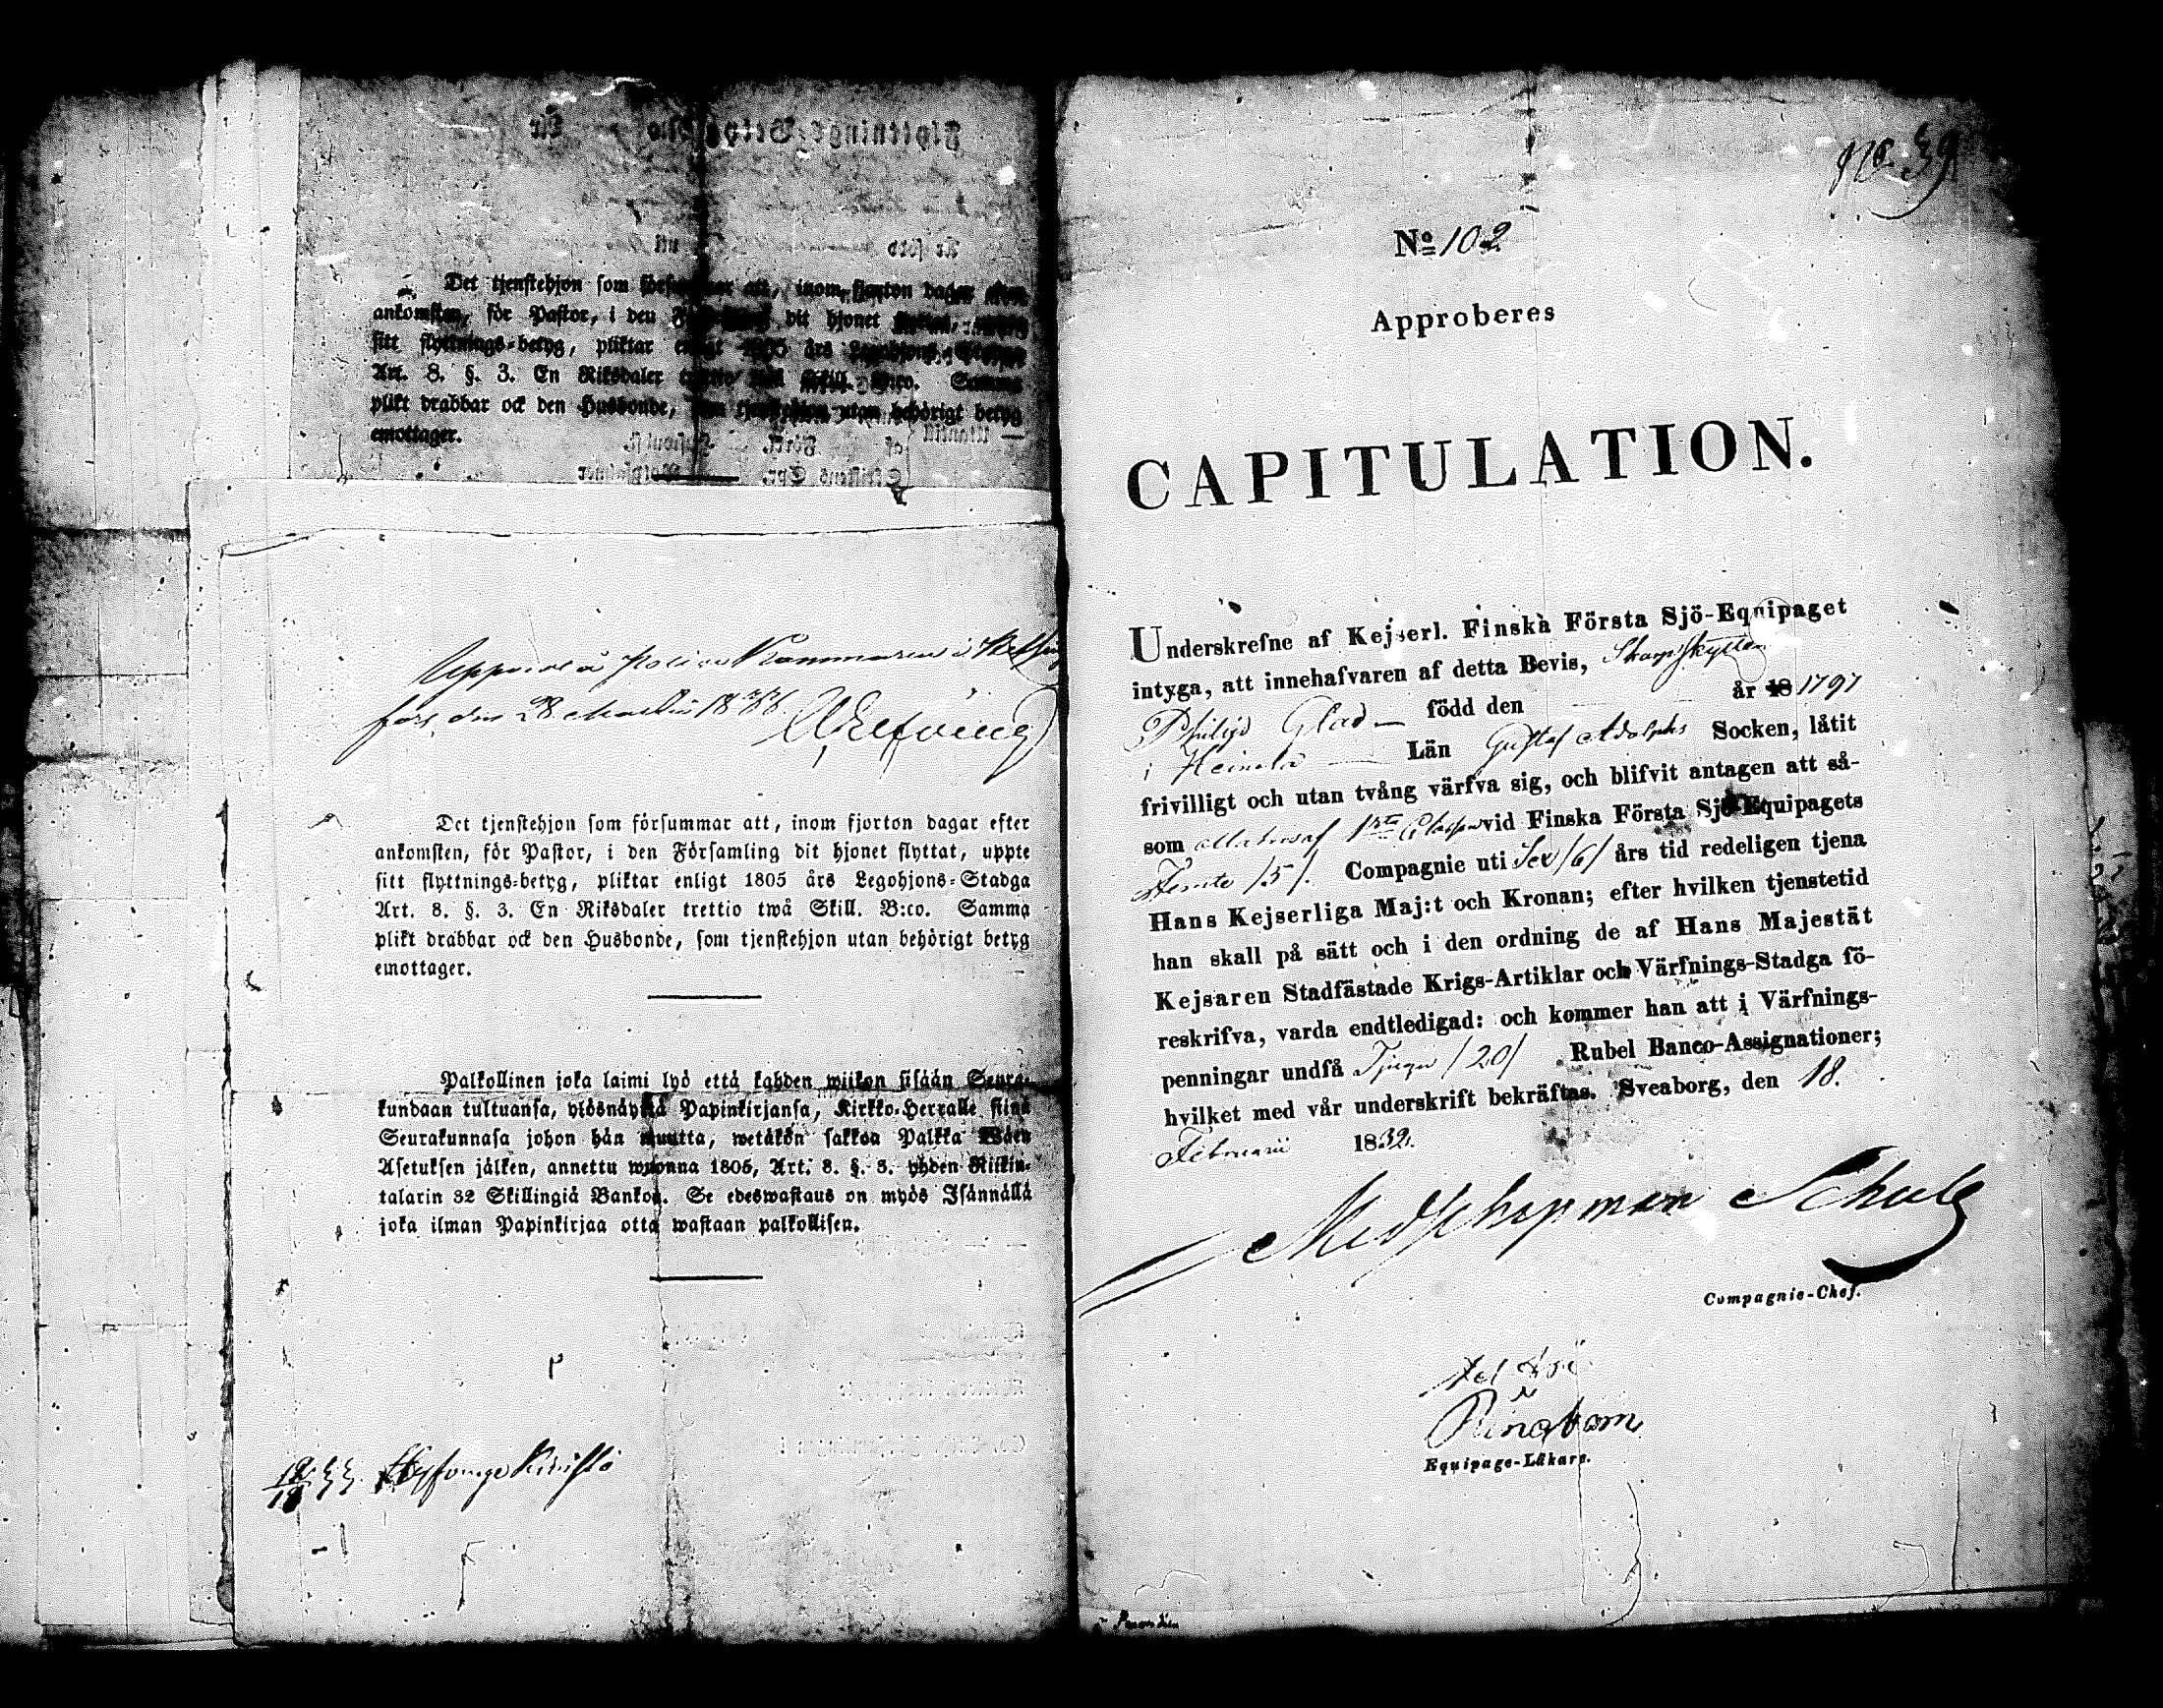 Det tjenstehjon som
ankomsten, för Pastor, i den dit hjonet
sitt flyttnings-betyg, pliktar
Art. 8. §. 3. En Riksdaler
plikt drabbar ock den Husbonde, utan behörigt betyg
emottager.
den 28 Martii
Det tjenstehjon som försummar att, inom fjorton dagar efter
ankomsten, för Pastor, i den Församling dit hjonet flyttat, uppte
sitt flyttnings-betyg, pliktar enligt 1805 års Legohjons-Stadga
Art. 8. §. 3. En Riksdaler trettio twå Skill. B:co. Samma
plikt drabbar ock den Husbonde, som tjenstehjon utan behörigt betyg
emottager.
Palkollinen joka laimi lyö että kahden wiikon sisään Seura-
kundaan tultuansa, ylösnäyttä Papinkirjansa, Kirkko-Herralle siinä
Seurakunnasa johon hän muutta, wetäkön sakkoa Palkka Wäen
Asetuksen jälken, annettu wuonna 1805, Art. 8. §. 3. yhden Riikin-
talarin 32 Skillingiä Bankoa. Se edeswastaus on myös Isännällä
joka ilman Papinkirjaa otta wastaan palkollisen.
No. 39
No 102
Approberes
CAPITULATION.
Underskrefne af Kejserl. Finska Första Sjö-Equipaget
intyga, att innehafvaren af detta Bevis, Skarpskytten
Philip Glad född den år 18 1797
i Heinola Län Gustaf Adolphs Socken, låtit
frivilligt och utan tvång värfva sig, och blifvit antagen att så-
som Matros af 1sta Classen vid Finska Första Sjö-Equipagets
Femte /5/. Compagnie uti Sex /6/ års tid redeligen tjena
Hans Kejserliga Maj:t och Kronan; efter hvilken tjenstetid
han skall på sätt och i den ordning de af Hans Majestät
Kejsaren Stadfästade Krigs-Artiklar och Värfnings-Stadga fö-
reskrifva, varda endtledigad: och kommer han att i Värfnings-
penningar undfå Tjugu /20/ Rubel Banco-Assignationer;
hvilket med vår underskrift bekräftas. Sveaborg, den 18.
Februarii 1832.
Schulz
Compagnie-Chef.
Ringbom
Equipage-Läkare.